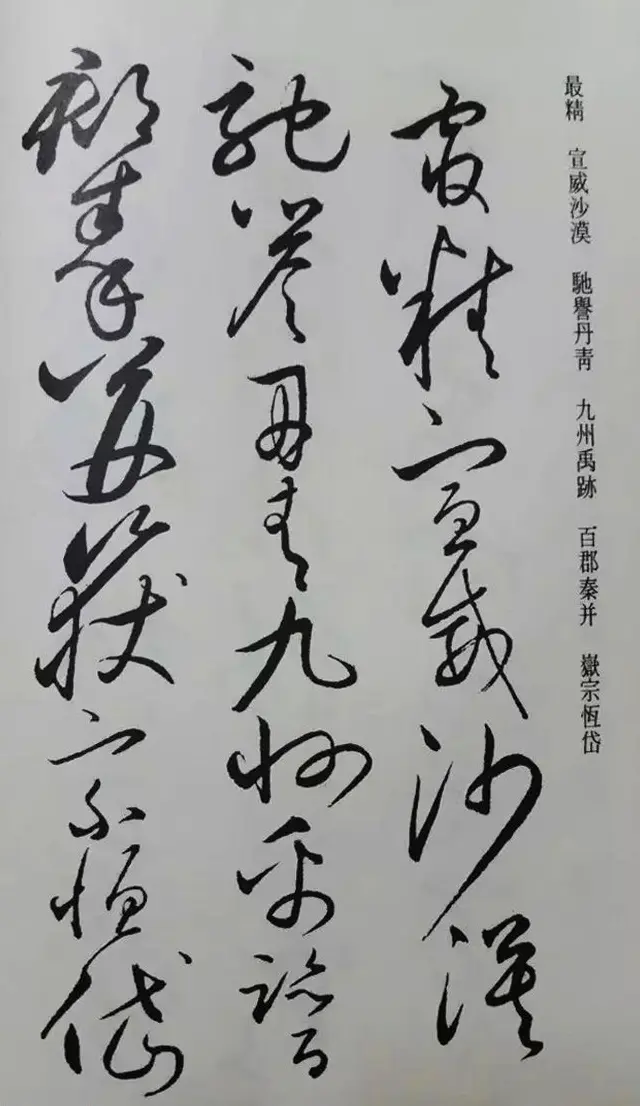 最精 宣威沙漠 馳譽丹青 九州禹跡 百郡秦并 嶽宗恆岱
最精宣威沙漠
馳譽丹青九州禹跡百
郡秦并嶽宗恆岱